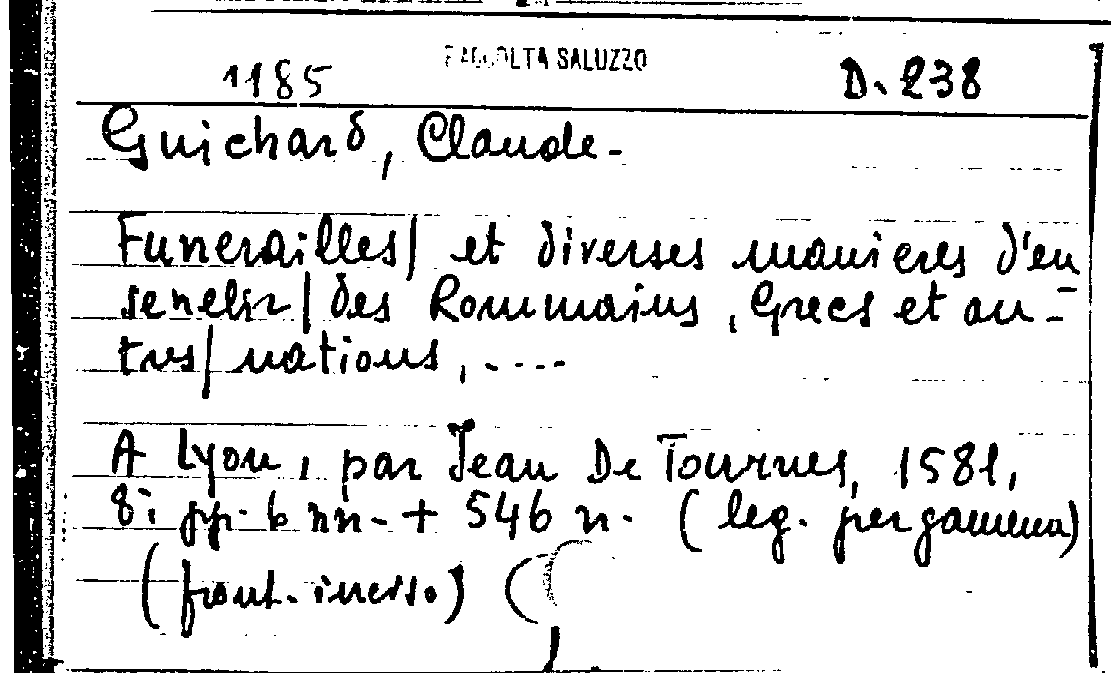 RACCOLTA SALUZZO
1185 D. 238
Guichard, Claude.
Funerailles/ et diverses manieres d'en
sevelir/ des Rommains, Grecs et au-
tres/ nations, ....
A Lyon, par Jean De Tournes, 1581,
8: pp. 6 nn. + 546 n. (leg. pergamena)
(front. inciso)